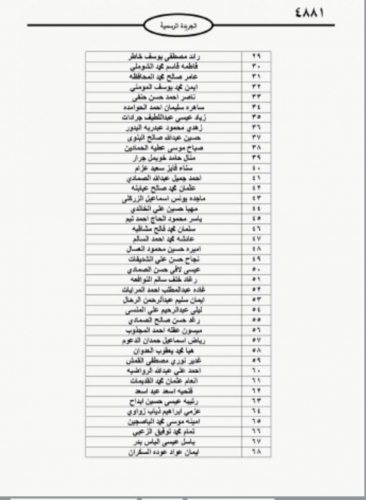 ٤٨٨١
الجريدة الرسمية
٢٩ رائد مصطفى يوسف خاطر
٣٠ فاطمه قاسم محمد الشوملي
٣١ عامر صالح محمد المحافظه
٣٢ ايمن محمد يوسف المومني
٣٣ ناصر احمد حسن حنفي
٣٤ ساهره سليمان احمد الحوامده
٣٥ زياد عيسى عبداللطيف جرادات
٣٦ زهدي محمود عبدربه البدور
٣٧ حسين عبدالله صالح
٣٨ صباح موسى عطيه الحمادين
٣٩ منال حامد خويمل جرار
٤٠ سناء فايز سعيد عزام
٤١ احمد جميل عبدالله الصمادي
٤٢ عثمان محمد صالح عبابنه
٤٣ ماجده يونس اسماعيل الزركلي
٤٤ مها حسين علي الخالدي
٤٥ ياسر محمود الحاج احمد تيم
٤٦ سلمان محمد فالح مشاقبه
٤٧ عائشه محمد احمد السالم
٤٨ اميره حسين محمود العسال
٤٩ نجاح حسن علي الشديفات
٥٠ عيسى لافي حسن الصمادي
٥١ رغاد خلف سالم النوافعه
٥٢ غاده عبدالمطلب احمد المرايات
٥٣ ايمان سليم عبدالرحمن الرحال
٥٤ ليلى عبدالرحيم علي المنسي
٥٥ رغد حسن صالح الصمادي
٥٦ ميسون عقله احمد المجذوب
٥٧ رياض اسماعيل حمدان الدعوم
٥٨ هيا محمد يعقوب العدوان
٥٩ غدير نوري مصطفى القمش
٦٠ احمد علي عبدالله الرواضيه
٦١ انعام عثمان محمد القديمات
٦٢ فتحيه اسعد عبد اسعد
٦٣ رتيبه عيسى حسين ابداح
٦٤ عزمي ابراهيم ذياب زواوي
٦٥ امينه موسى محمد الياصجين
٦٦ تمام محمد توفيق الزعبي
٦٧ باسل عيسى الياس بدر
٦٨ ايمان عواد عوده السكران